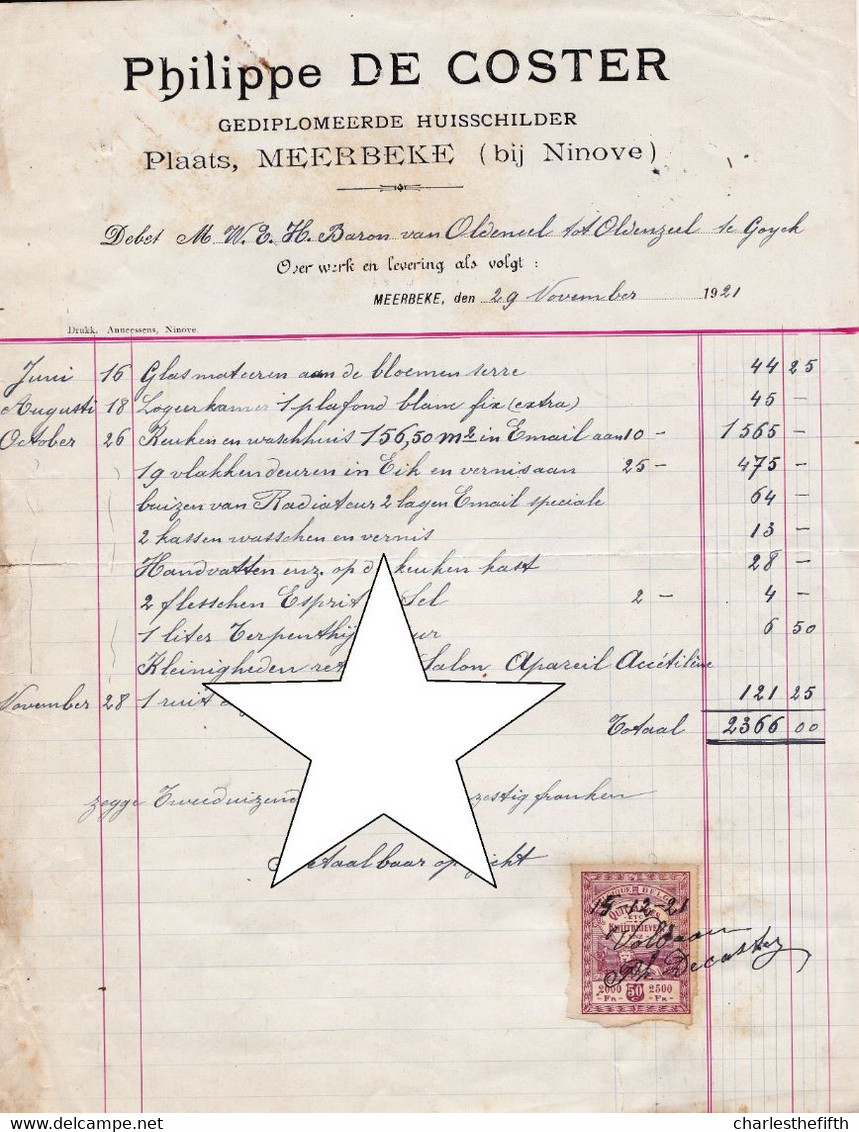 Philippe DE COSTER
GEDIPLOMEERDE HUISSCHILDER
Plaats, MEERBEKE (bij Ninove)
Debet M. W. E. H. Baron van Oldeneel tot Oldenzeel te Goyck
Over werk en levering als volgt :
MEERBEKE, den 29 November 1921
Drukk. Anneessens, Ninove.
Juni 16 Glas mateeren aan de bloemen serre 44 25
Augusti 18 Logeerkamer 1 plafond blanc fix (extra) 45 —
October 26 Keuken en waschhuis 156,50 m2 in Email aan 10 — 1565 —
19 vlakken deuren in Eik en vernis aan 25 — 475 —
buizen van Radiateur 2 lagen Email speciale 64 —
2 kassen wasschen en vernis 13 —
Handvatten enz. op de keuken kast 28 —
2 flesschen Esprit Sel 2 — 4 —
1 liter 6 50
Kleinigheden Salon Apareil Accétilène
November 28 1 ruit 121 25
Totaal 2366 00
zegge Tweeduizend zestig franken
Betaalbaar op zicht
BELGIQUE BELGIE
QUITTANCES
ETC
15-12-21
Voldaan
Ph Decoster
2000 50 2500
FR FR
charlesthefifth
www.delcampe.net